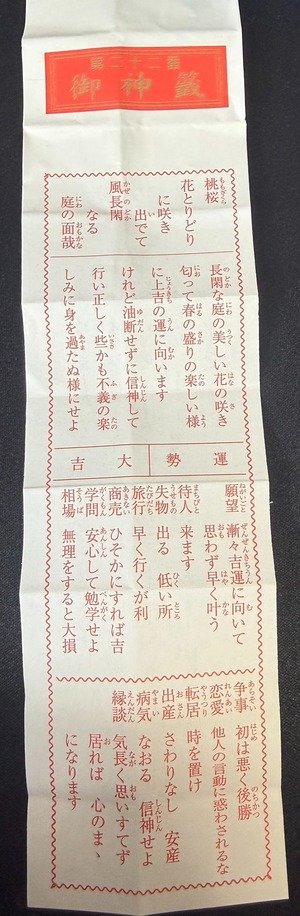 第二十二番
御神籤
桃桜
花とりどり
に咲き
出でて
風長閑
なる
庭の面哉
長閑な庭の美しい花の咲き
匂って春の盛りの楽しい様
に上吉の運に向います
けれど油断せずに信神して
行い正しく些かも不義の楽
しみに身を過たぬ様にせよ
運勢
大吉
願望 漸々吉運に向いて
思わず早く叶う
待人 来ます
失物 出る 低い所
旅行 早く行くが利
商売 ひそかにすれば吉
学問 安心して勉学せよ
相場 無理をすると大損
争事 初は悪く後勝
恋愛 他人の言動に惑わされるな
転居 時を置け
出産 さわりなし 安産
病気 なおる 信神せよ
縁談 気長く思いすてず
居れば 心のまゝ
になります